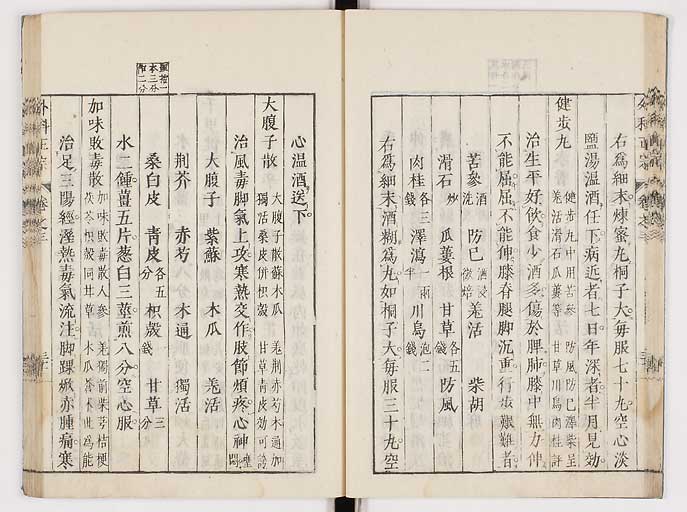 右爲細末煉蜜丸桐子大每服七十丸空心淡
鹽湯溫酒任下病近者七日年深者半月見効
健步丸 健步丸中用苦參 防風防巳澤柴呈
羌活滑石瓜蔞等 甘草川烏肉桂評
治生平好飲食少酒多傷於脾肺膝中無力伸
不能屈屈不能伸膝脊腿脚沉重行步艱難者
苦參 酒洗 防巳 酒浸 羌活 柴胡
滑石 炒 瓜蔞根 甘草 各五錢 防風
肉桂 各三錢 澤瀉 一兩半 川烏 泡二錢
右爲細末酒糊爲丸如桐子大每服三十丸空
心温酒送下
大腹子散 大腹子散蘇木瓜 羌荆赤芍木通加
獨活桑皮併枳殼 甘草青皮効可誇
治風毒脚氣上攻寒熱交作肢節煩疼心神壅悶
大腹子 紫蘇 木瓜 羌活
荆芥 赤芍 木通 獨活
桑白皮 青皮 各五分 枳殼 錢 甘草 三分
水二鍾薑五片葱白三莖煎八分空心服
加味敗毒散 加味敗毒散人參 羌獨前柴芎桔梗
茯苓枳殼同甘草 木瓜蒼术此爲能
治足三陽經溼熱毒氣流注脚踝焮赤腫痛寒
外科正宗 卷之三